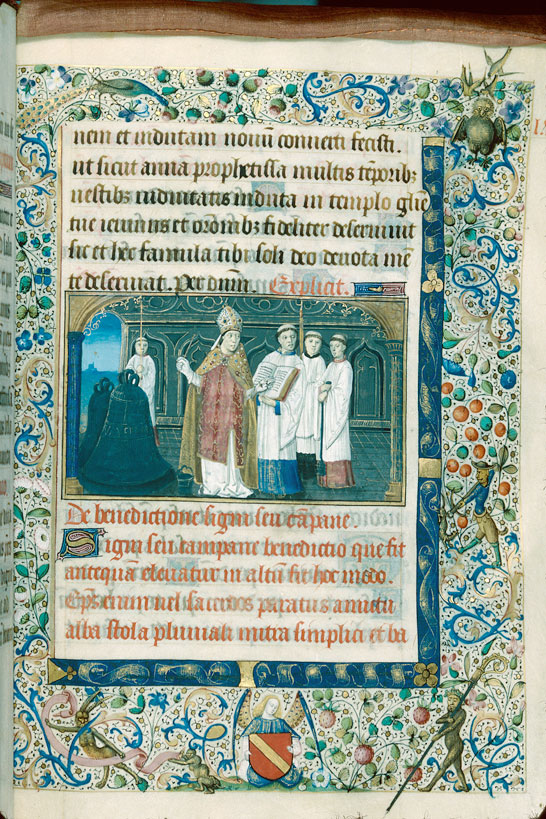 nem et indutam novū converti fecisti.
ut sicut anna prophetissa multis tēporibꝫ
vestibꝫ viduitatis induta in templo glīe
tue ieiuniis et orōnibꝫ fideliter deservivit
sic et hec famula tibi soli deo devota mē
te deserviat. Per dūm. Explicit.
De benedictione signi seu cāpane
Signi seu kampane benedictio que fit
antequā elevatur in altū fit hoc modo.
vel sacerdos paratus amictu
alba stola pluviali mitra simplici et ba